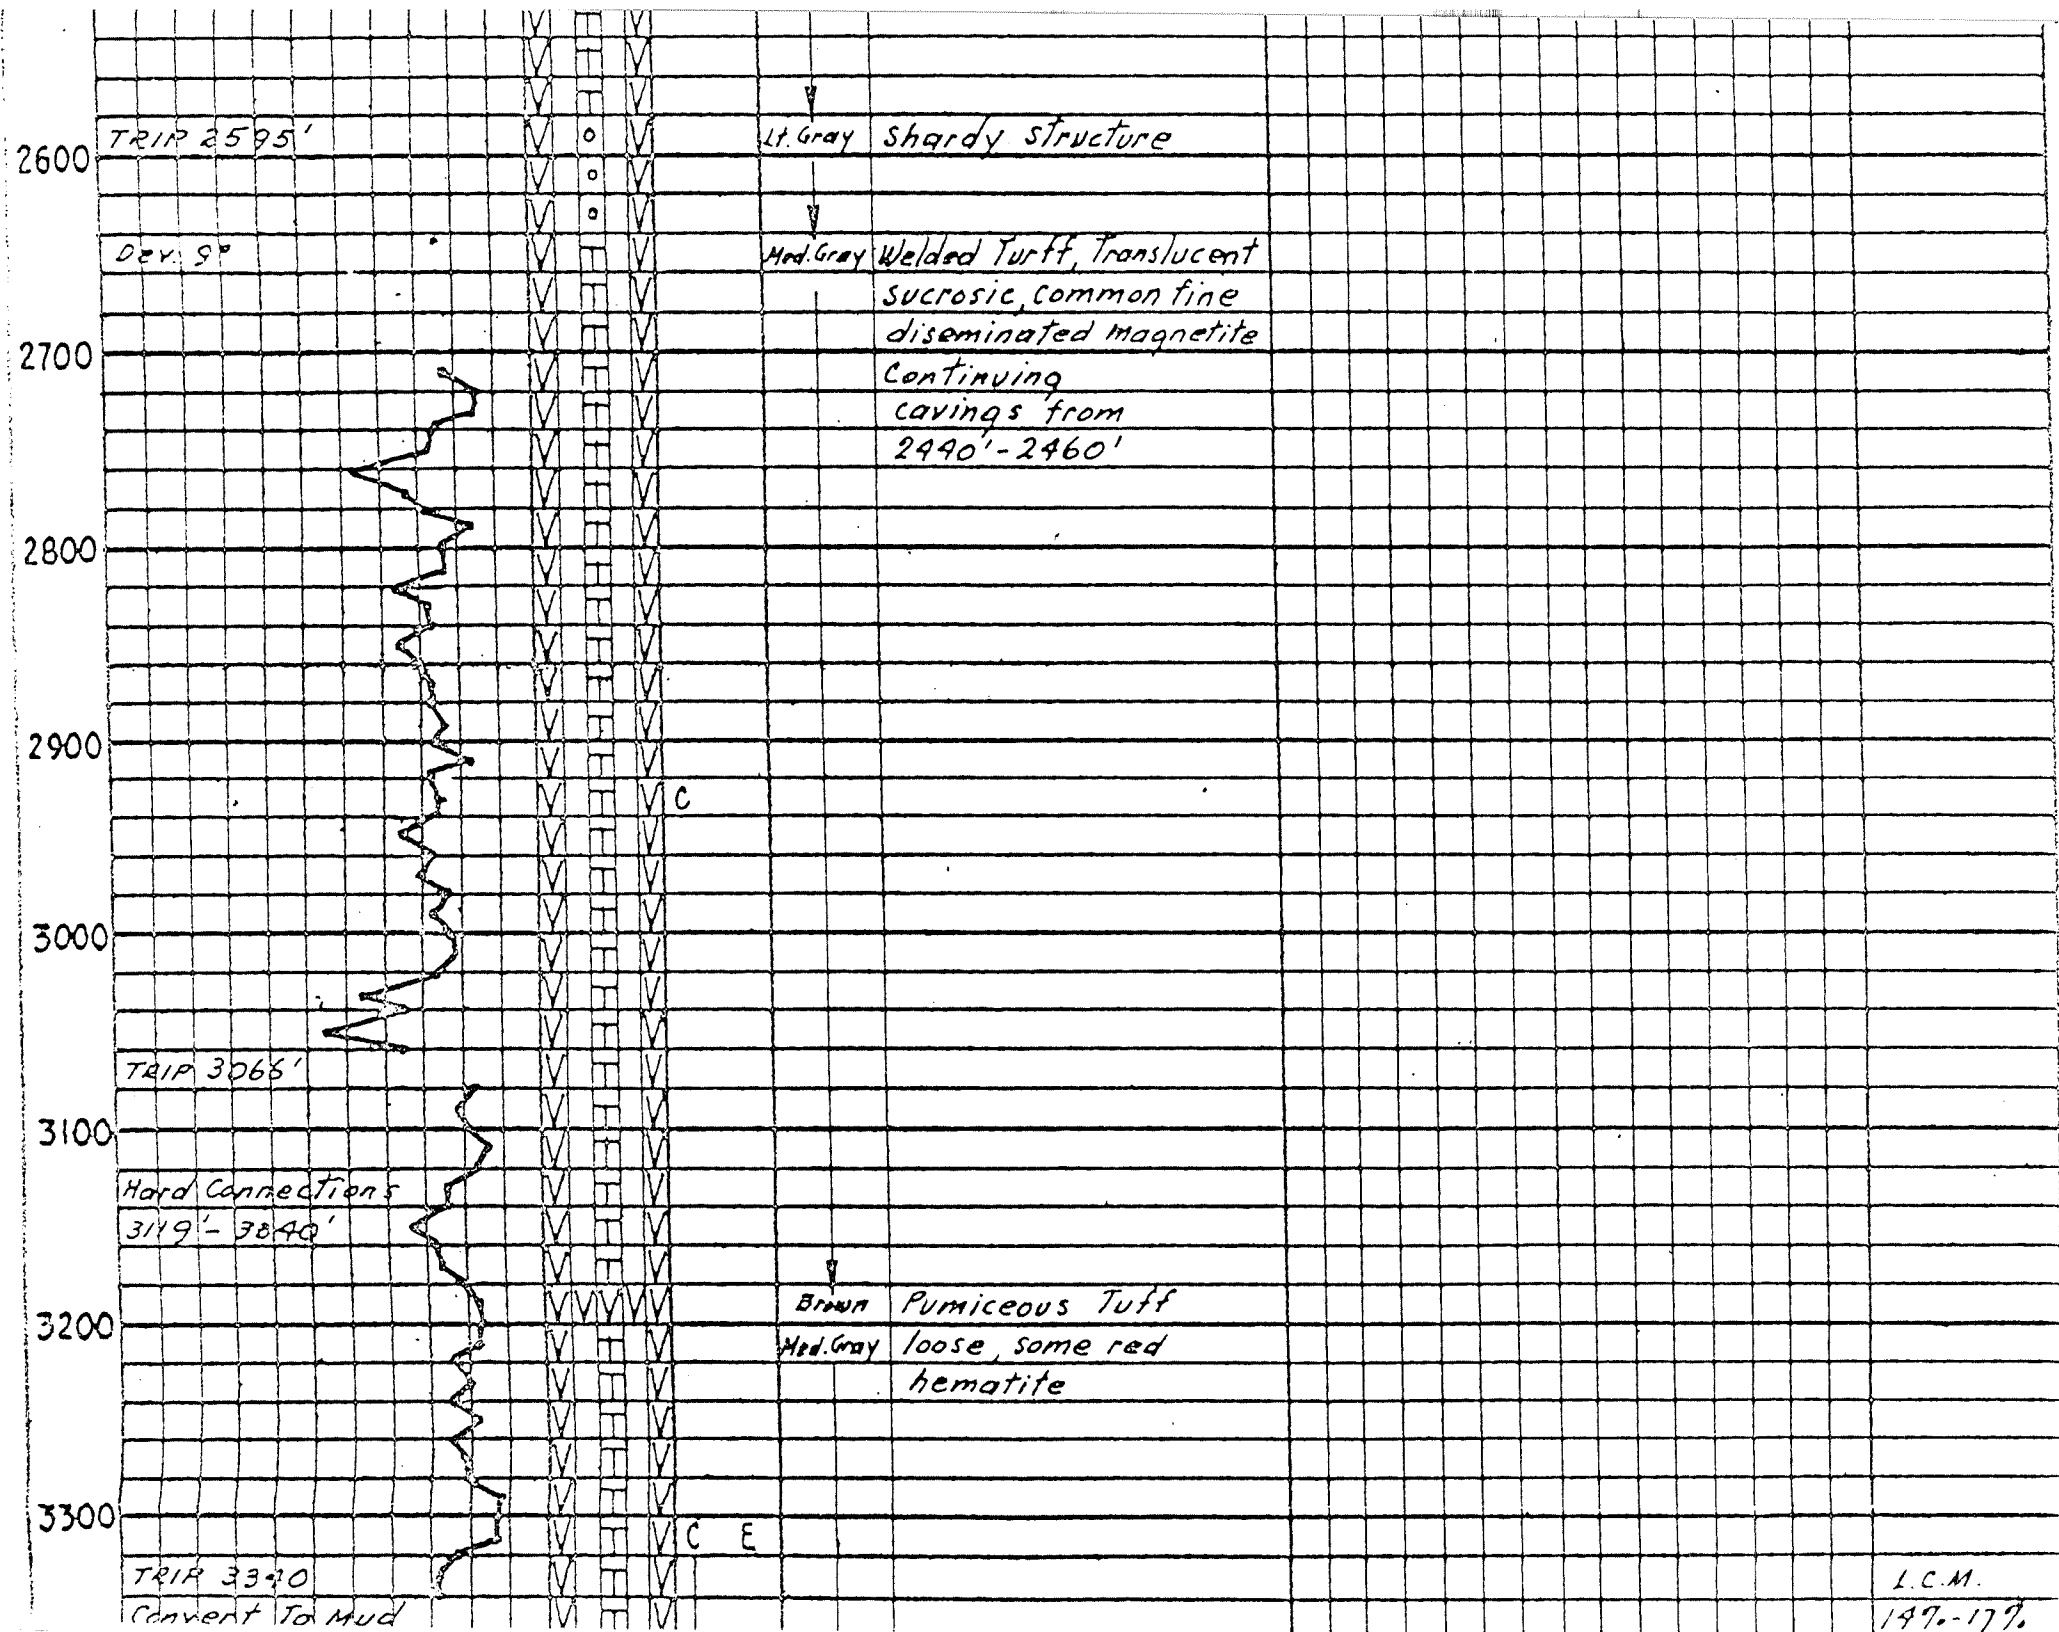 TRIP 2595'
Lt. Gray Shardy Structure
2600
Dev. 9°
Med. Gray Welded Turff, Translucent
sucrosic, common fine
diseminated magnetite
2700
Continuing
cavings from
2440'-2460'
2800
2900
C
3000
TRIP 3066'
3100
Hard Connections
3119'- 3840'
Brown Pumiceous Tuff
3200
Med. Gray loose, some red
hematite
3300
C E
TRIP 3340
L.C.M.
Convent To Mud
14%-17%